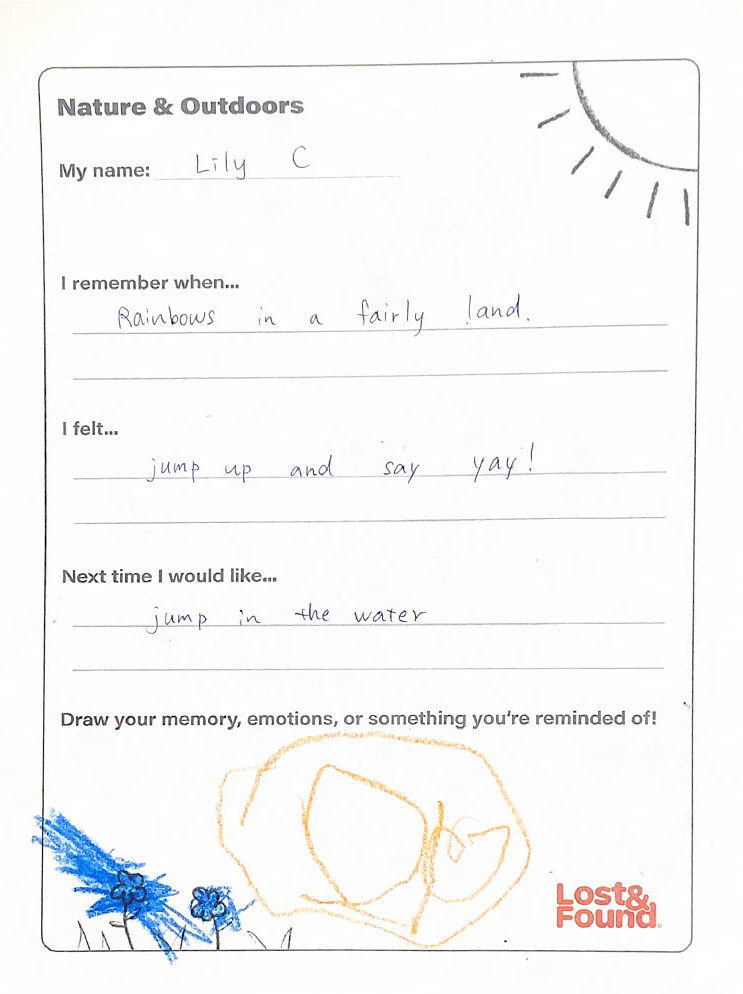 Nature & Outdoors
My name: Lily C
I remember when...
Rainbows in a fairly land.
I felt...
jump up and say yay!
Next time I would like...
jump in the water
Draw your memory, emotions, or something you're reminded of!
Lost&
Found.